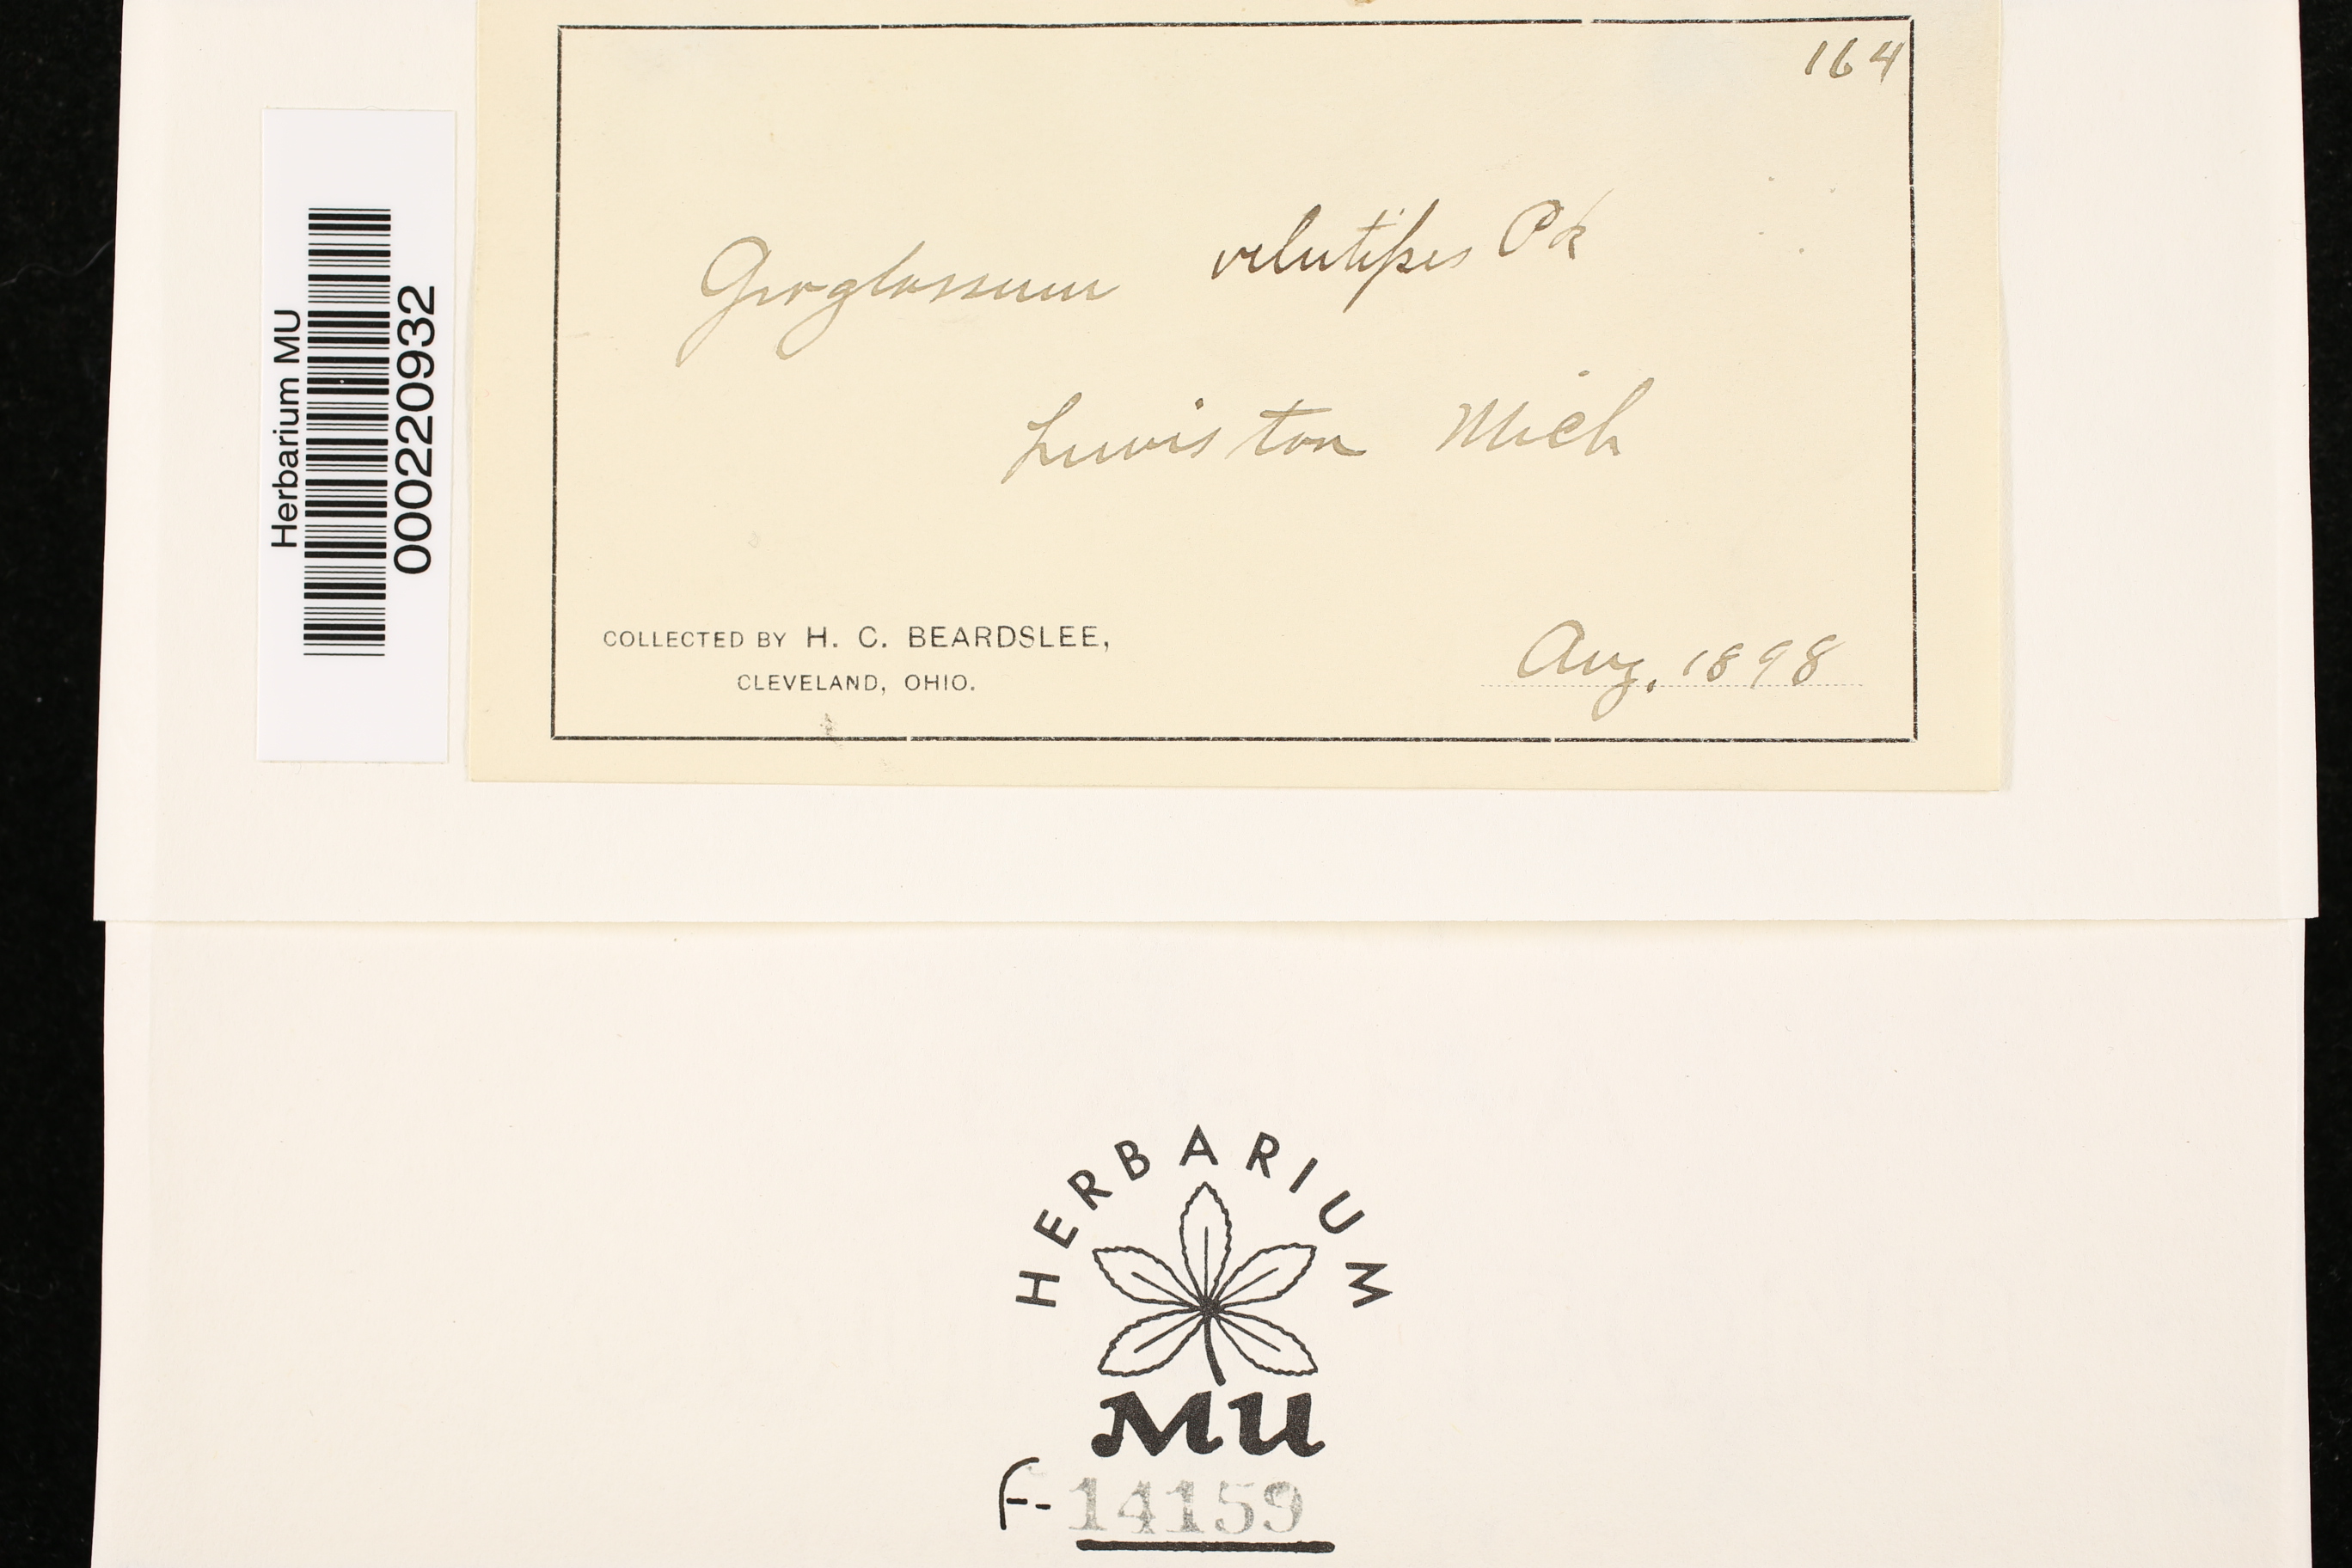 164
Geoglossum velutipes Pk
Lewiston Mich
COLLECTED BY H. C. BEARDSLEE,
CLEVELAND, OHIO.
Aug. 1898
Herbarium MU
000220932
HERBARIUM
MU
F-14159